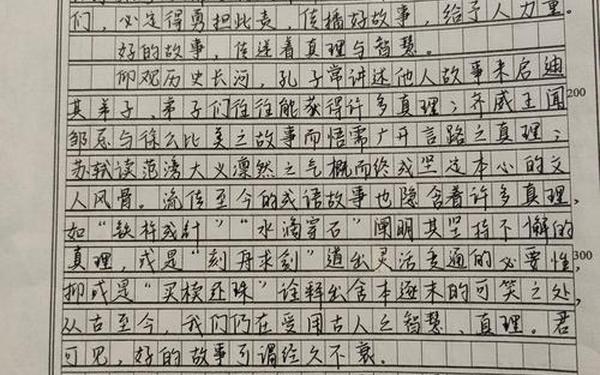 们，必定得勇担此责，传播好故事，给予人力量。
好的故事，传递着真理与智慧。
仰观历史长河，孔子常讲述他人故事来启迪
其弟子，弟子们往往能获得许多真理；齐威王闻200
邹忌与徐公比美之故事而悟需广开言路之真理；
苏轼读范滂大义凛然之气概而终成坚定本心的文
人风骨。流传至今的成语故事也隐含着许多真理，
如“铁杵成针”“水滴穿石”阐明其坚持不懈的
真理，或是“刻舟求剑”道出灵活变通的必要性，300
抑或是“买椟还珠”诠释出舍本逐末的可笑之处，
从古至今，我们仍在受用古人之智慧、真理。君
可见，好的故事可谓经久不衰。